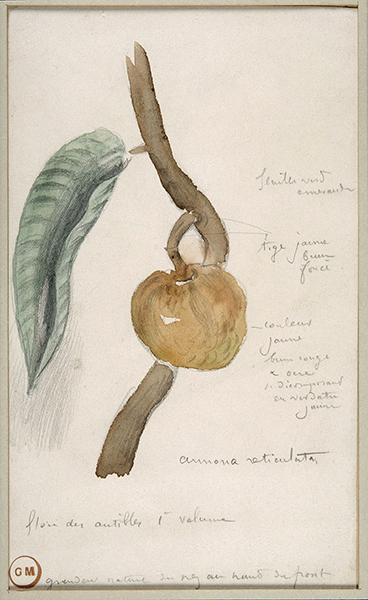 feuilles vert
emeraude
tige jaune
brun
foncé
couleur
jaune
brun rouge
& ocre
se décomposant
en verdatre
jaune
annona reticulata
flore des antilles 1er volume
GM
grandeur nature du nez au haut du front